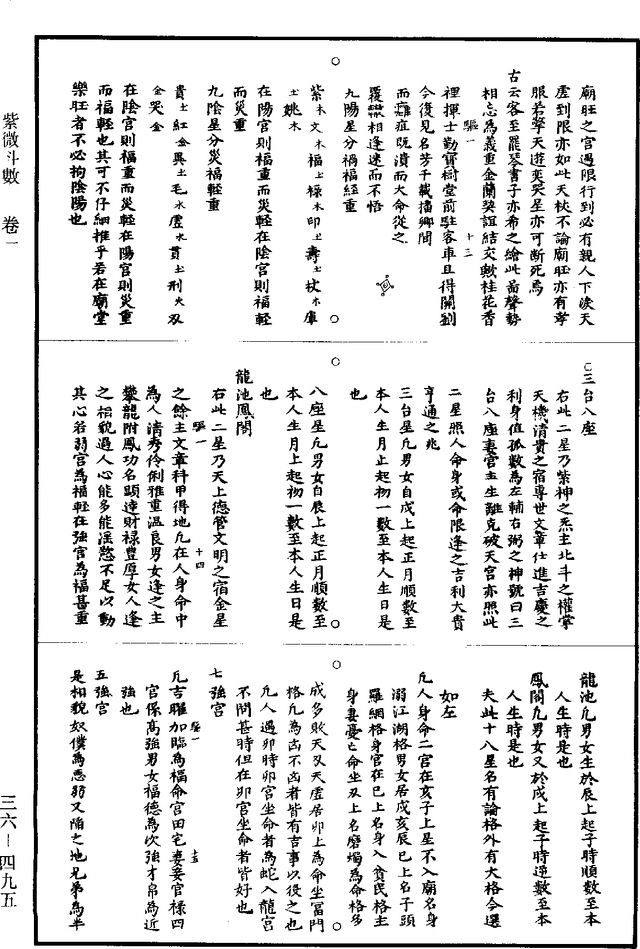 紫微斗數 卷一
三六—四九五
廟旺之宮遇限行到必有親人下淚天
虛到限亦如此天杖不論廟旺亦有孝
服若擎天遊奕哭星亦可断死為
古云客至罷琴書子亦希之繪此啚聲勢
相忘為義重金蘭契誼結交歡桂花香
驅一 十三
裡揮士勤寶樹堂前駐客車且得開劉
今復見名芳千載播鄉閭
而癰症既潰而大命從之
覆轍相逢迷而不悟
九陽星分禍福経重
紫木文木福土祿木印土壽土杖木庫
土姚木
在陽宮則福重而災輕在陰宮則福輕
而災重
九陰星分災福輕重
貴土紅金異土毛水虛水貫土刑火刃
金哭金
在陰宮則福重而災輕在陽宮則災重
而福輕也其可不仔細推乎若在廟堂
樂旺者不必拘陰陽也
三台八座
右此二星乃紫神之炁主北斗之權掌
天機清貴之宿専世文章仕進吉慶之
利身值孤數為左輔右弼之神號曰三
台八座妻宮主生離克破天宮亦照此
二星照人命身或命限逢之吉利大貴
亨通之兆
三台星凢男女自戌上起正月順數至
本人生月止起初一數至本人生日是
也
八座星凢男女自辰上起正月順數至
本人生月上起初一數至本人生日是
也
龍池鳳閣
右此二星乃天上德管文明之宿金星
驅一 十四
之餘主文章科甲得地凢在人身命中
為人清秀伶俐雅重溫良男女逢之主
攀龍附鳳功名顯達財祿豊厚女人逢
之相貌過人心能多能淫慾不足以動
其心若弱宮為福輕在強宮為福甚重
龍池凢男女生於辰上起子時順數至本
人生時是也
鳳閣凢男女又於戌上起子時逆數至本
人生時是也
夫此十八星名有論格外有大格今選
如左
凢人身命二宮在亥子上星不入廟名身
溺江湖格男女居戌亥辰巳上名子頭
羅網格身宮在巳上名身入貧民格主
身妻憂亡命坐刃上名磨蠋為命格多
成多敗天刃天虛居卯上為命坐冨門
格凢為凶不凶者皆有吉事以後之也
凢人遇卯時卯宮坐命者為蛇入龍宮
不問甚時但在卯宮坐命者皆好也
七強宮
凢吉曜加臨為福命宮田宅妻妾官祿四
驅一
官係高強男女福德為次強才帛為近
強也
五強宮
是相貌奴僕為悉弱又陥之地兄弟為半